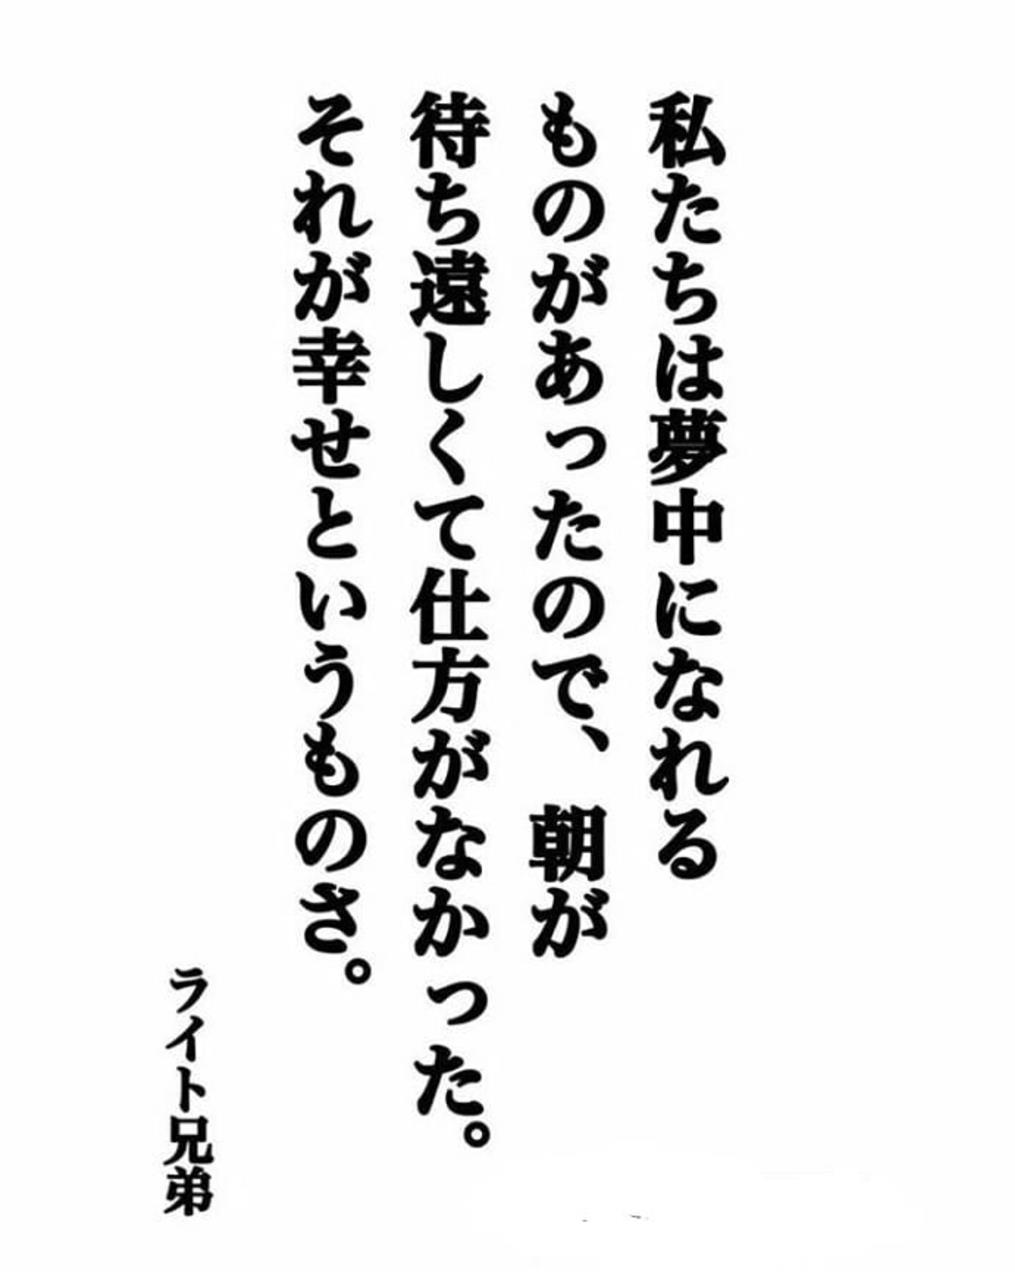 私たちは夢中になれる
ものがあったので、朝が
待ち遠しくて仕方がなかった。
それが幸せというものさ。
ライト兄弟